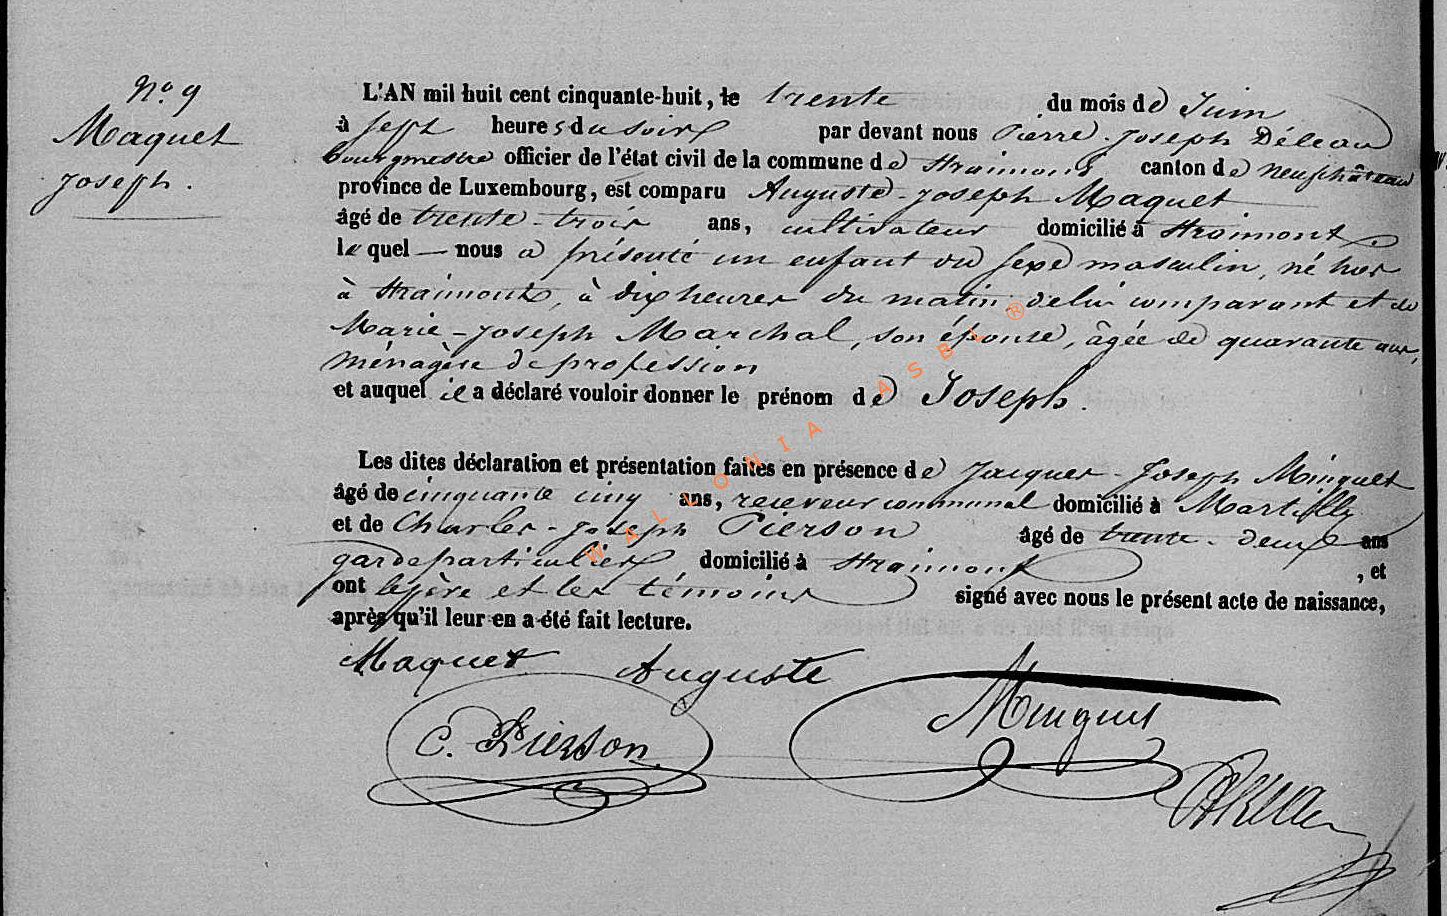 N° 9
Maquet
Joseph.
L'AN mil huit cent cinquante-huit, le trente du mois de Juin
à sept heures du soir par devant nous Pierre-Joseph Déleau
bourgmestre officier de l'état civil de la commune de Straimont canton de neufchâteau
province de Luxembourg, est comparu Auguste-Joseph Maquet
âgé de trente-trois ans, cultivateur domicilié à Straimont
le quel — nous a présenté un enfant du sexe masculin, né hier
à Straimont, à dix heures du matin, de lui comparant et de
Marie-Joseph Marchal, son épouse, âgée de quarante ans,
ménagère de profession
et auquel il a déclaré vouloir donner le prénom de Joseph.
Les dites déclaration et présentation faites en présence de Jacques-Joseph Minguet
âgé de cinquante cinq ans, receveur communal domicilié à Martilly
et de Charles-Joseph Pierson âgé de trente-deux ans
garde particulier domicilié à Straimont , et
ont le père et les témoins signé avec nous le présent acte de naissance,
après qu'il leur en a été fait lecture.
Maquet Auguste
Minguet
C. Pierson
WALLONIA ASBL ®